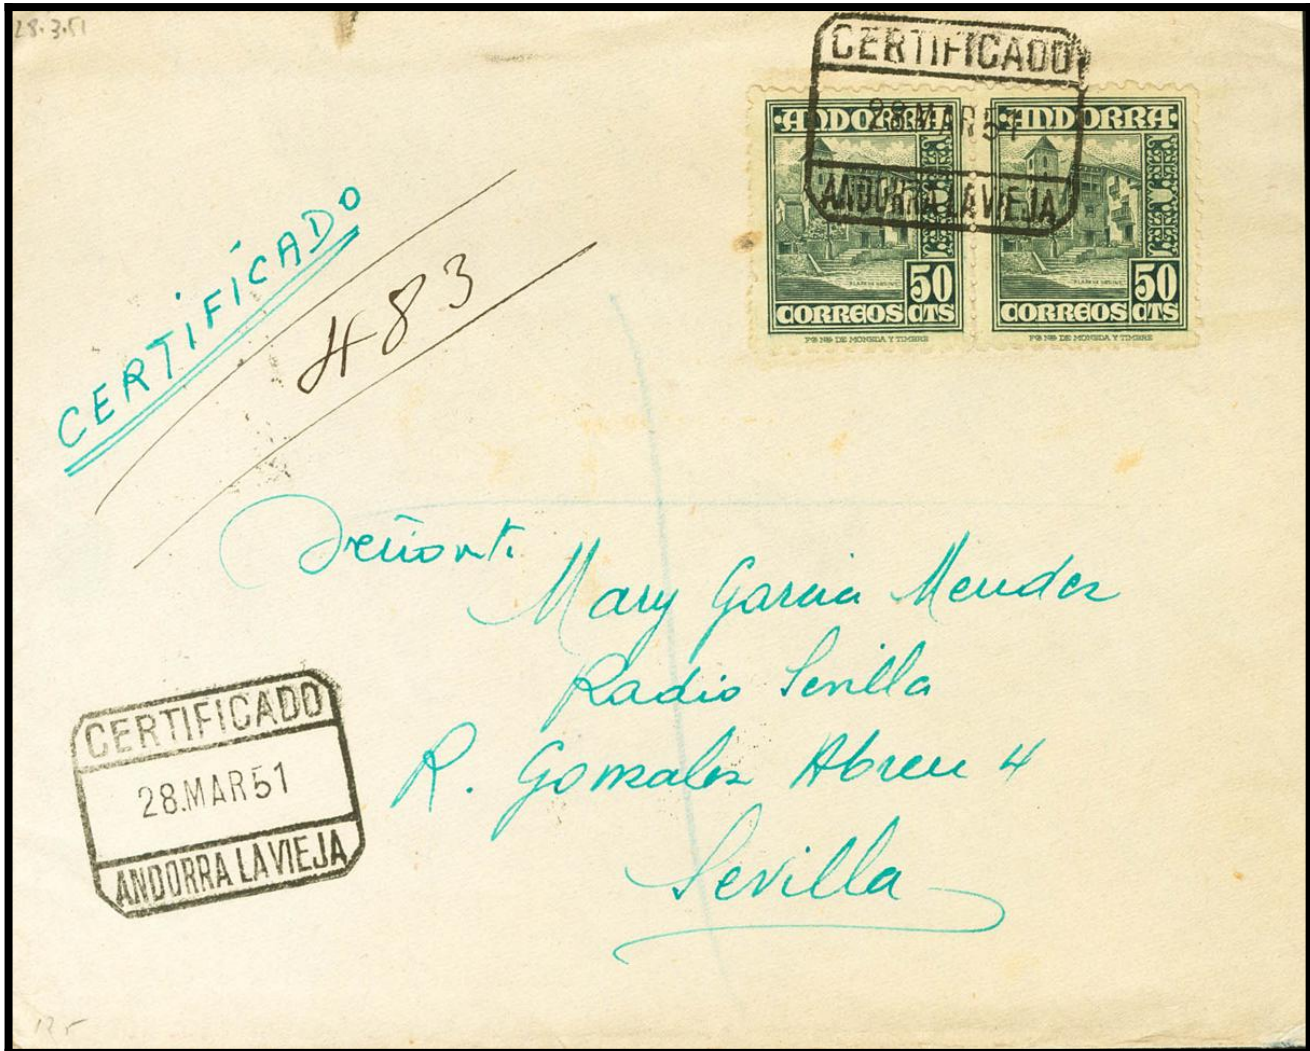 28.3.51
CERTIFICADO
28.MAR 51
ANDORRA LA VIEJA
·ANDORRA·
·ANDORRA·
50
50
CORREOS CTS
CORREOS CTS
DE MONEDA Y TIMBRE
DE MONEDA Y TIMBRE
CERTIFICADO
483
Señorit.
Mary Garcia Mendez
Radio Sevilla
R. Gonzalez Abreu 4
Sevilla
CERTIFICADO
28.MAR 51
ANDORRA LA VIEJA
125